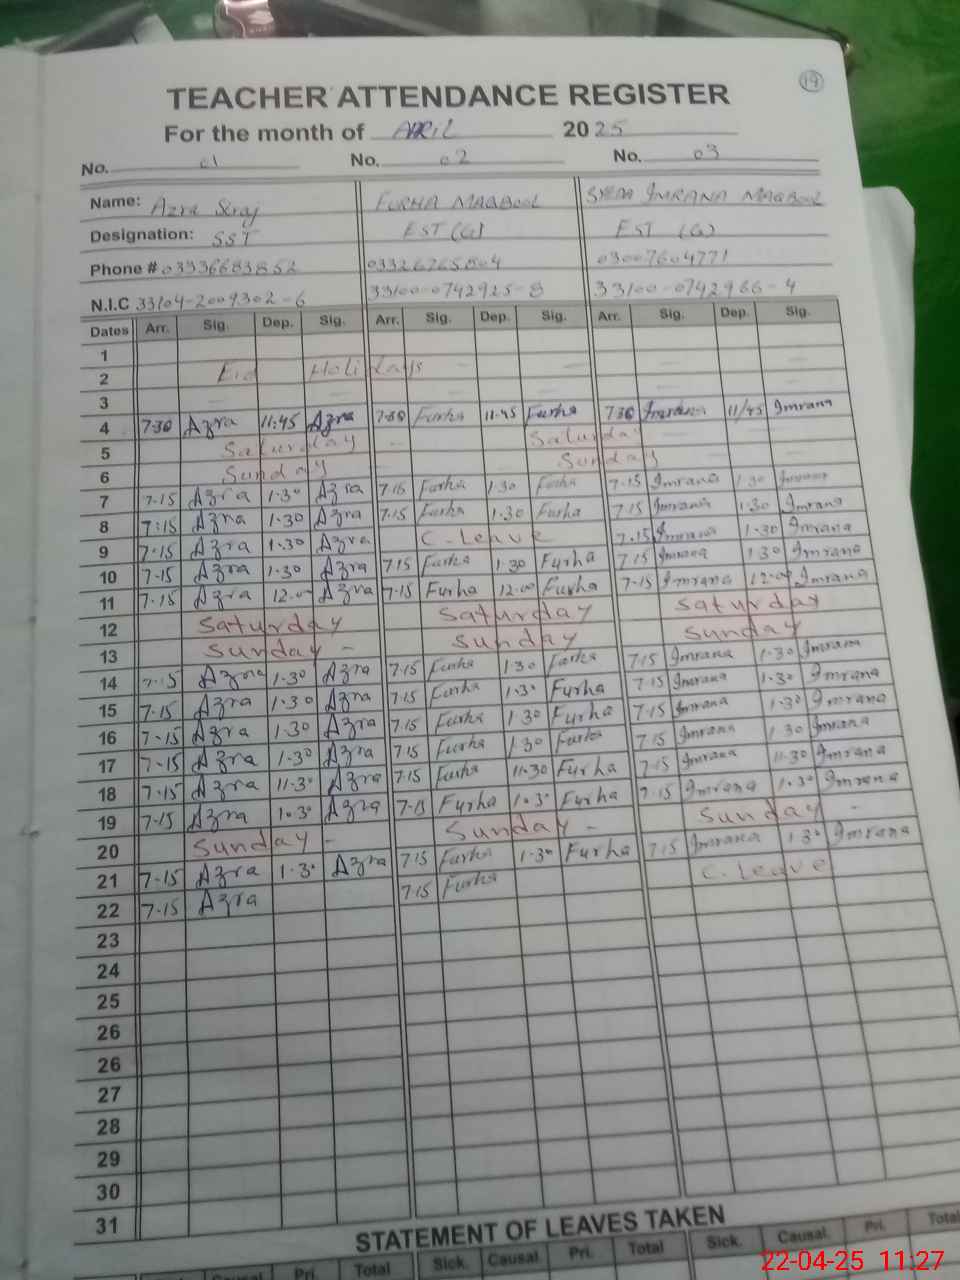 19
TEACHER ATTENDANCE REGISTER
For the month of APRIL 2025
No. 01 No. 02 No. 03
Name: Azra Siraj FURHA MAQBOOL SYEDA IMRANA MAQBOOL
Designation: SST EST (G) EST (G)
Phone # 03336683852 03326765804 03007604771
N.I.C 33104-2009302-6 33100-0742925-8 33100-0742966-4
Dates Arr. Sig. Dep. Sig. Arr. Sig. Dep. Sig. Arr. Sig. Dep. Sig.
1
2 Eid Holidays
3
4 7-30 Azra 11:45 Azra 7-30 Furha 11:45 Furha 7 30 Imrana 11/45 Imrana
5 Saturday Saturday
6 Sunday Sunday
7 7-15 Azra 1-30 Azra 7-15 Furha 1-30 Furha 7-15 Imrana 1-30 Imrana
8 7:15 Azra 1-30 Azra 7-15 Furha 1-30 Furha 7-15 Imrana 1-30 Imrana
9 7-15 Azra 1-30 Azra C-leave 7-15 Imrana 1-30 Imrana
10 7-15 Azra 1-30 Azra 7-15 Furha 1-30 Furha 7-15 Imrana 1-30 Imrana
11 7-15 Azra 12-00 Azra 7-15 Furha 12-00 Furha 7-15 Imrana 12-00 Imrana
12 Saturday Saturday Saturday
13 Sunday - Sunday Sunday
14 7-15 Azra 1-30 Azra 7-15 Furha 1 30 Furha 7-15 Imrana 1-30 Imrana
15 7-15 Azra 1-30 Azra 7-15 Furha 1-30 Furha 7-15 Imrana 1-30 Imrana
16 7-15 Azra 1-30 Azra 7-15 Furha 1 30 Furha 7-15 Imrana 1-30 Imrana
17 7-15 Azra 1-30 Azra 7-15 Furha 1-30 Furha 7 15 Imrana 1 30 Imrana
18 7-15 Azra 11-30 Azra 7-15 Furha 11-30 Furha 7-15 Imrana 11-30 Imrana
19 7-15 Azra 1-30 Azra 7-15 Furha 1-30 Furha 7-15 Imrana 1-30 Imrana
20 Sunday - Sunday - Sunday -
21 7-15 Azra 1-30 Azra 7-15 Furha 1-30 Furha 7-15 Imrana 1-30 Imrana
22 7-15 Azra 7-15 Furha C. Leave
23
24
25
26
26
27
28
29
30
31
STATEMENT OF LEAVES TAKEN
Causal Pri. Total Sick. Causal Pri. Total Sick. Causal. Pri. Total
22-04-25 11:27